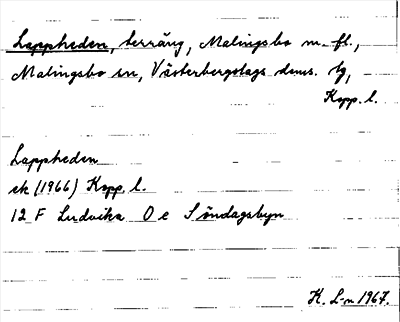 Lappheden, terräng, Malingsbo m. fl.,
Malingsbo sn, Västerbergslags doms. tg,
Kopp. l.
Lappheden
ek (1966) Kopp. l.
12 F Ludvika O e Söndagsbyn
K. L-n 1967.